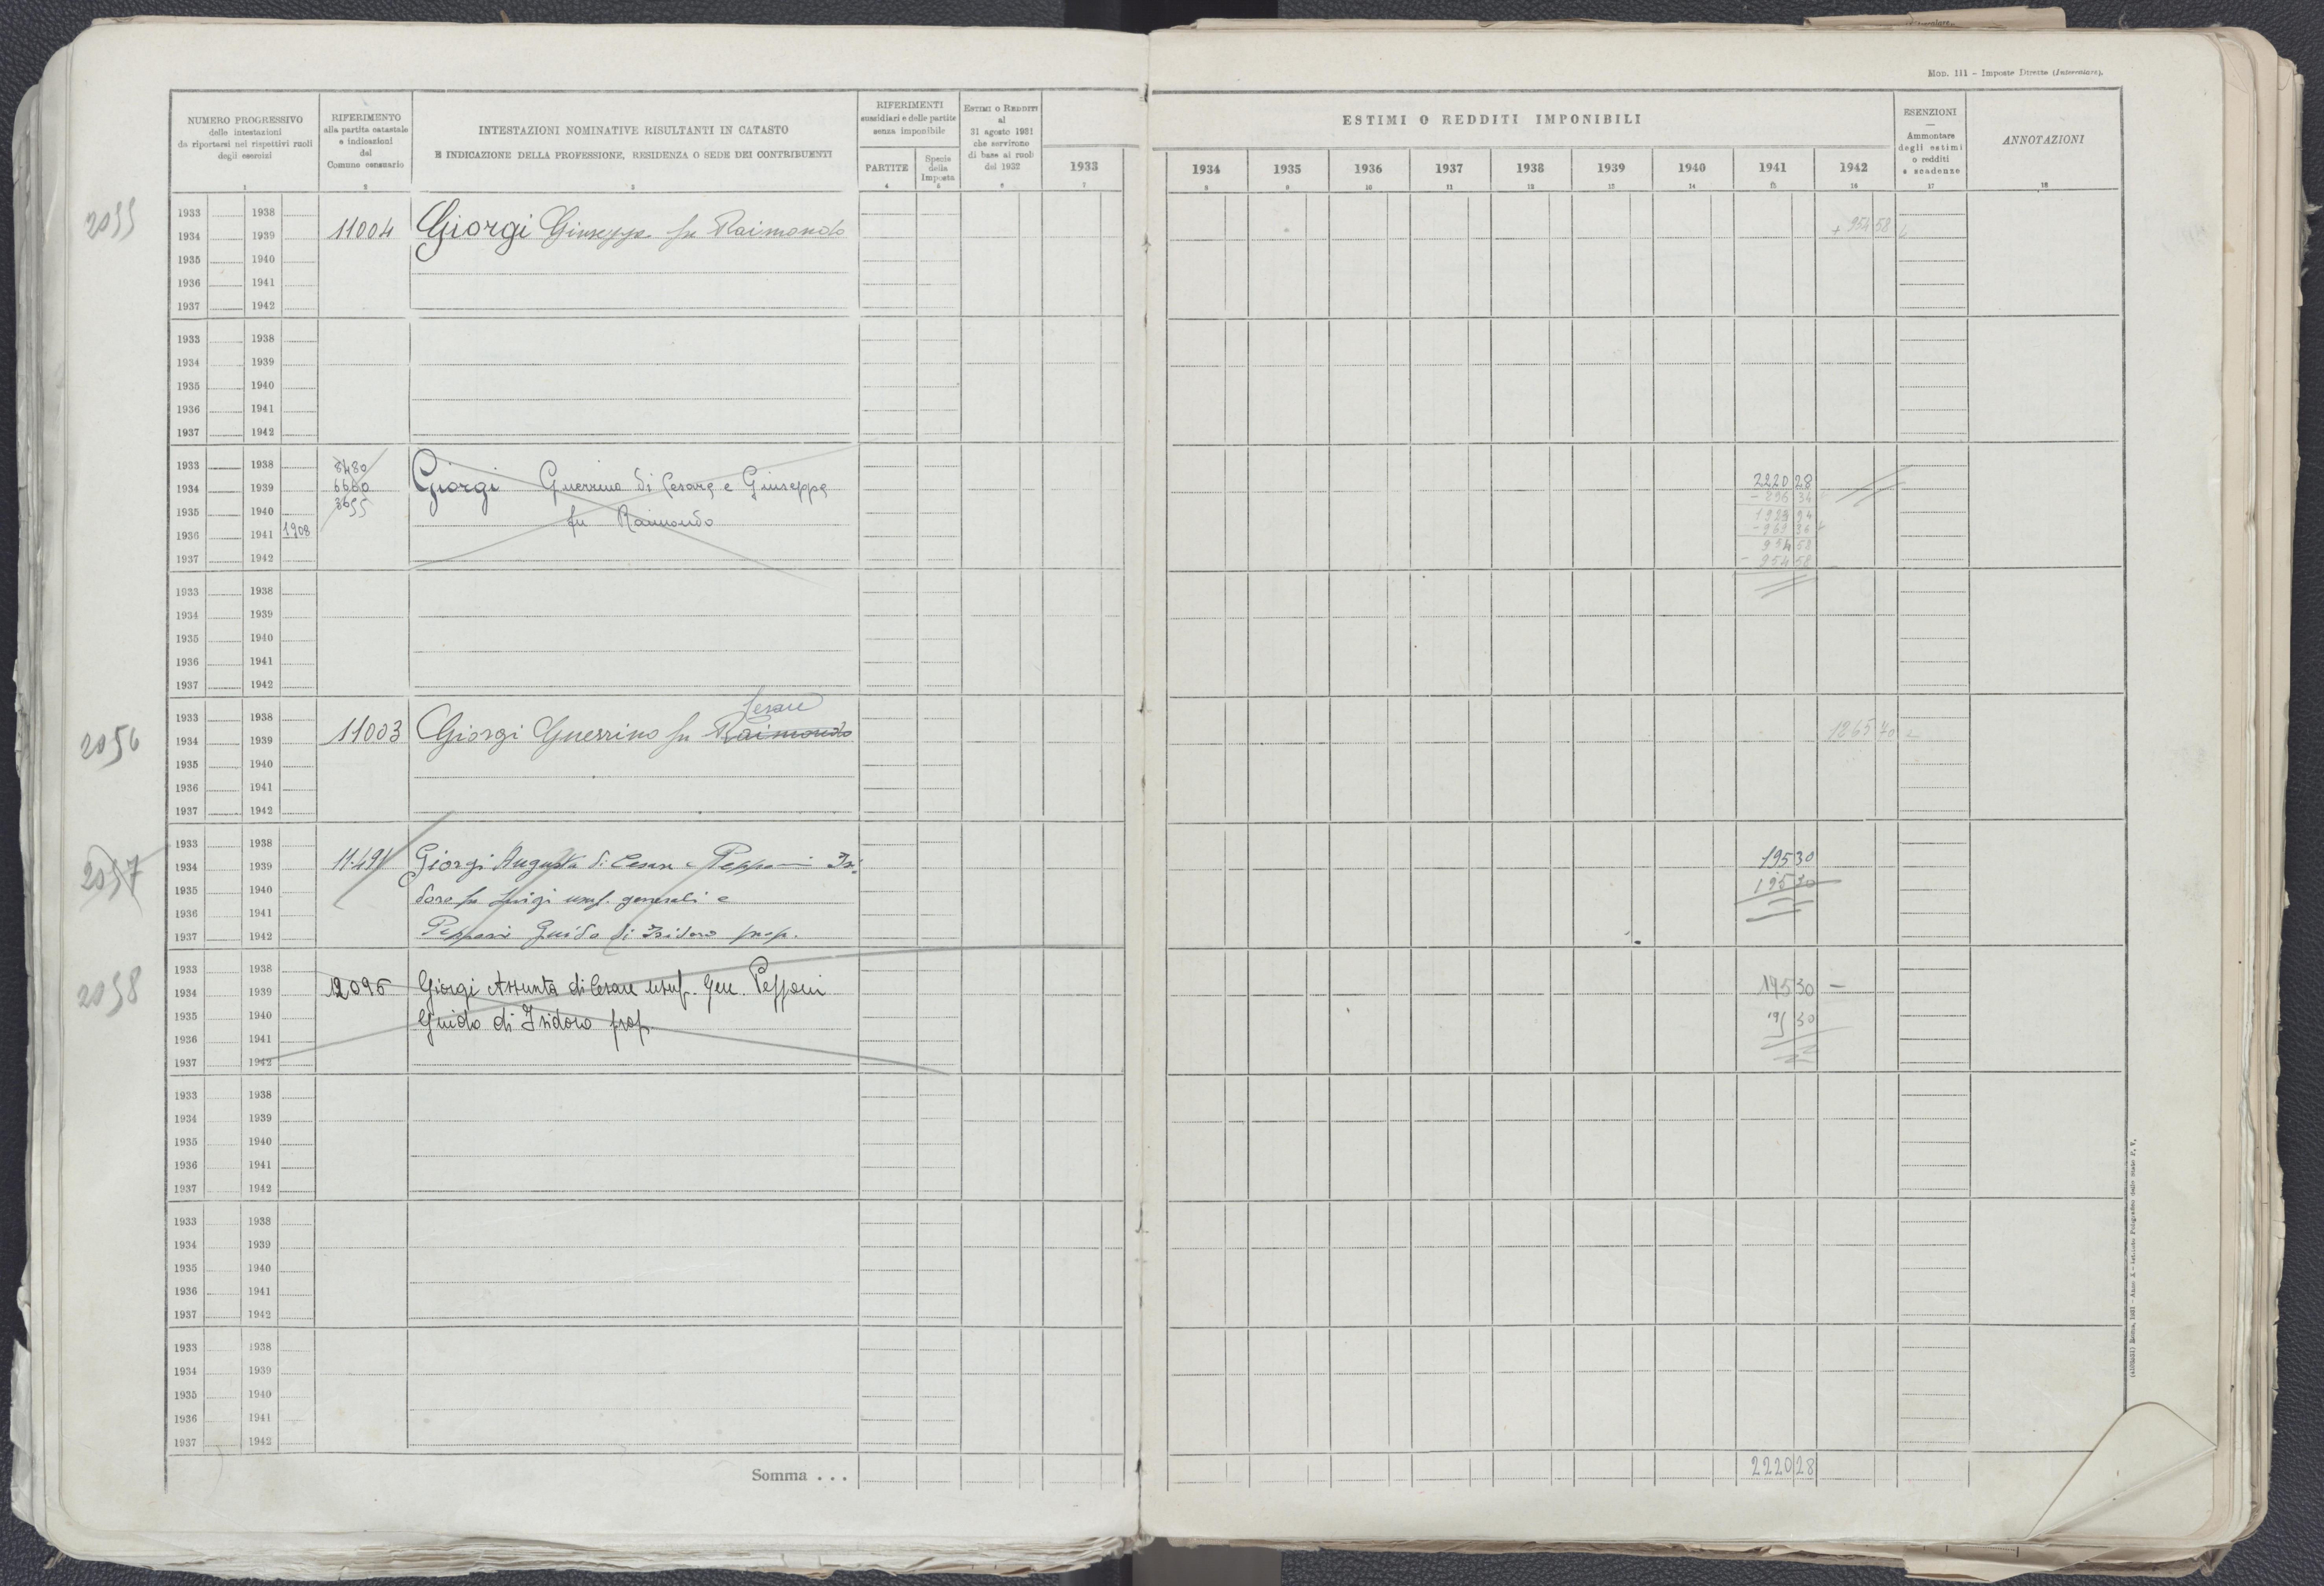 Mod. 111 - Imposte Dirette (Intercalare).
NUMERO PROGRESSIVO
delle intestazioni
da riportarsi nei rispettivi ruoli
degli esercizi
1
RIFERIMENTO
alla partita catastale
e indicazioni
del
Comune censuario
2
INTESTAZIONI NOMINATIVE RISULTANTI IN CATASTO
E INDICAZIONE DELLA PROFESSIONE, RESIDENZA O SEDE DEI CONTRIBUENTI
3
RIFERIMENTI
sussidiari e delle partite
senza imponibile
PARTITE
4
Specie
della
Imposta
5
ESTIMI O REDDITI
al
31 agosto 1931
che servirono
di base ai ruoli
del 1932
6
ESTIMI O REDDITI IMPONIBILI
1933 1934 1935 1936 1937 1938 1939 1940 1941 1942
7 8 9 10 11 12 13 14 15 16
ESENZIONI
—
Ammontare
degli estimi
o redditi
e scadenze
17
ANNOTAZIONI
18
1933 1938
1934 1939 11004 Giorgi Giuseppe fu Raimondo + 954 58
1935 1940
1936 1941
1937 1942
1933 1938
1934 1939
1935 1940
1936 1941
1937 1942
1933 1938 8480 Giorgi Guerrino di Cesare e Giuseppe 2220 28
1934 1939 6660 - 296 34
1935 1940 3655 fu Raimondo
1936 1941 1908 - 969 36
1937 1942 954 58
- 954 58
1933 1938
1934 1939
1935 1940
1936 1941
1937 1942
Cesare
1933 1938
2056 1934 1939 11003 Giorgi Guerrino fu Raimondo 1265 70
1935 1940
1936 1941
1937 1942
1933 1938
2057 1934 1939 11491 Giorgi Augusta di Cesare e Pepponi Isi- 195 30
1935 1940 doro fu Luigi usuf. generali e 195 30
1936 1941
1937 1942 Pepponi Guido di Isidoro prop.
1933 1938
2058 1934 1939 12095 Giorgi Assunta di Cesare usuf. Gen. Pepponi 195 30
1935 1940 Guido di Isidoro prop. 195 30
1936 1941
1937 1942
1933 1938
1934 1939
1935 1940
1936 1941
1937 1942
1933 1938
1934 1939
1935 1940
1936 1941
1937 1942
1933 1938
1934 1939
1935 1940
1936 1941
1937 1942
Somma . . . 2220 28